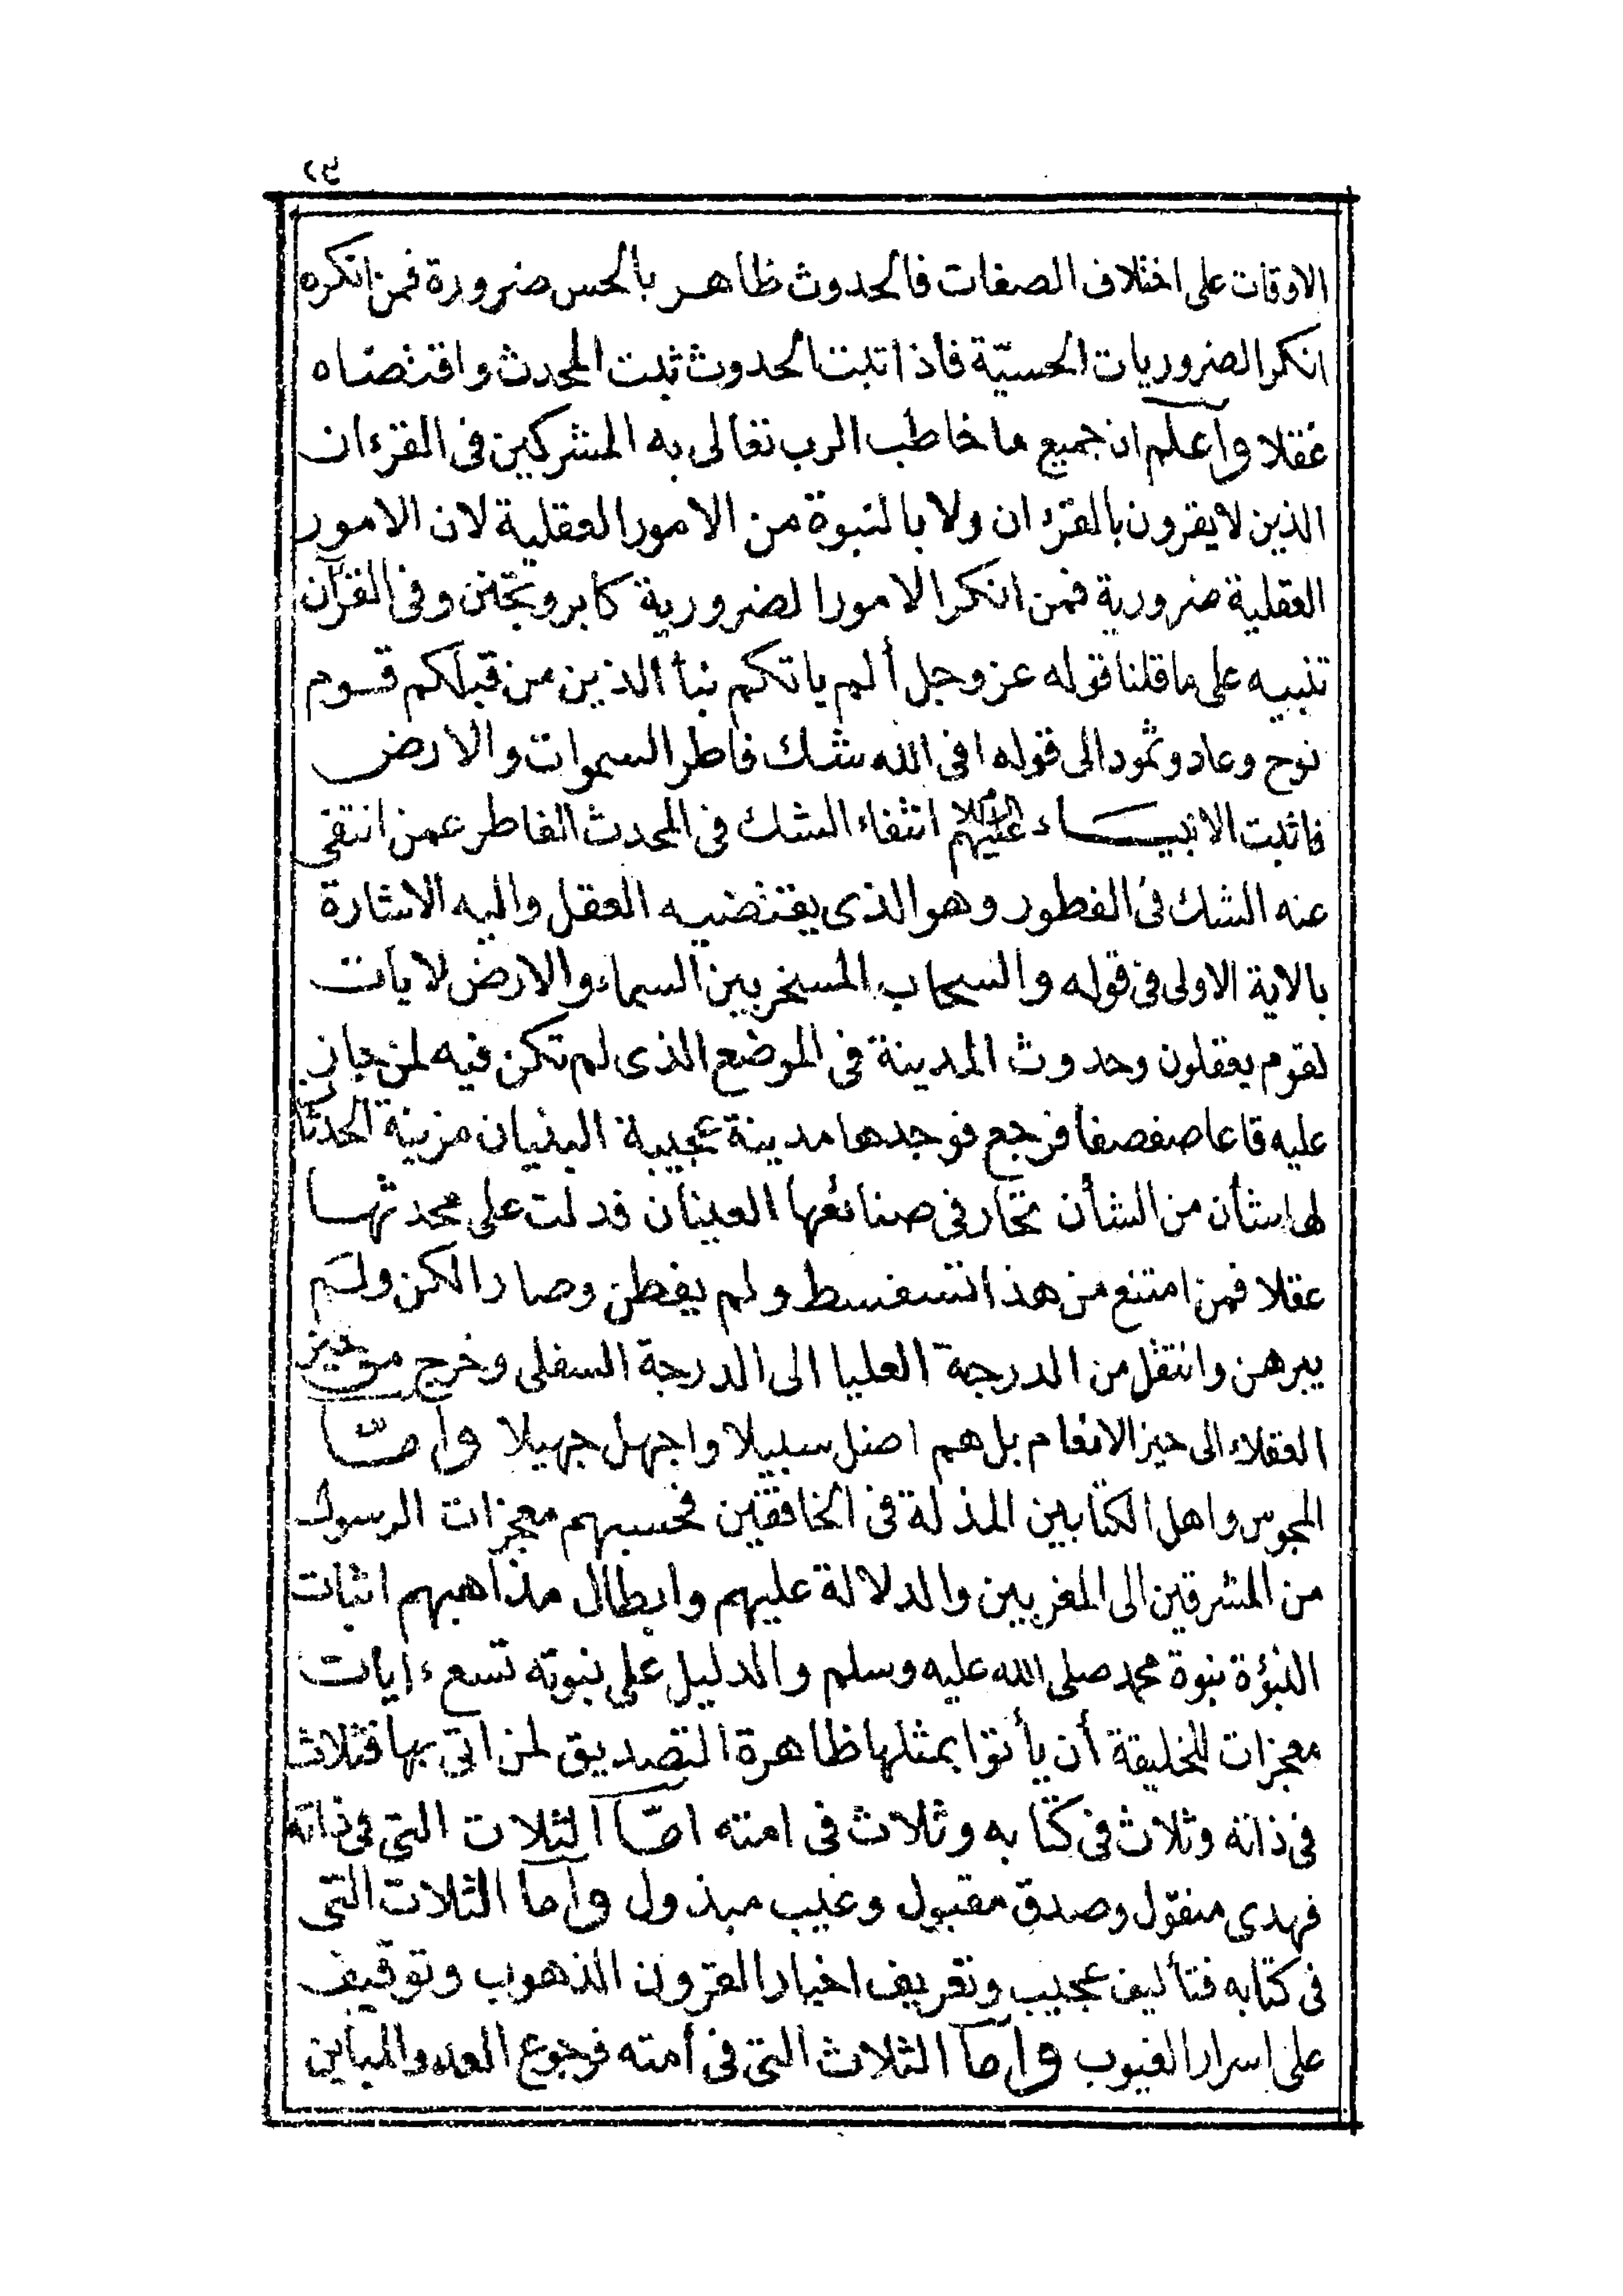 ٢٩
الاوقات على اختلاف الصفات فالحدوث ظاهر بالحس ضرورة فمن انكره
انكر الضروريات الحسيّة فاذا ثبت الحدوث ثبت المحدث واقتضاه
عقلا واعلم ان جميع ما خاطب الرب تعالى به المشركين فى القرءان
الذين لا يقرون بالقرءان ولا بالنبوة من الامور العقلية لان الامور
العقلية ضرورية فمن انكر الامور الضرورية كابر وتجنن وفى القرآن
تنبيه على ما قلنا قوله عز وجل ألم ياتكم نبأ الذين من قبلكم قوم
نوح وعاد وثمود الى قوله افى الله شك فاطر السموات والارض
فاثبت الانبياء عليهم السلام انتفاء الشك فى المحدث الفاطر عمن انتقى
عنه الشك فى الفطور وهو الذى يقتضيه العقل واليه الاشارة
بالاية الاولى فى قوله والسحاب المسخر بين السماء والارض لايات
لقوم يعقلون وحدوث المدينة فى الموضع الذى لم تكن فيه لمن جاز
عليه قاعا صفصفا فرجع فوجدها مدينة عجيبة البنيان مزينة الحدثان
لها شأن من الشأن تحار فى صنائعها العينان فدلت على محدثها
عقلا فمن امتنع من هذا تسفسط ولم يفطن وصار الكن ولم
يبرهن وانتقل من الدرجة العليا الى الدرجة السفلى وخرج من حيز
العقلاء الى حيز الانعام بل هم اضل سبيلا واجهل جهيلا وأمّا
المجوس واهل الكتابين المذلة فى الخافقين فحسبهم معجزات الرسول
من المشرقين الى المغربين والدلالة عليهم وابطال مذاهبهم اثبات
النبؤة نبوة محمد صلى الله عليه وسلم والدليل على نبوته تسع ءايات
معجزات للخليقة أن يأتوا بمثلها ظاهرة التصديق لمن اتى بها فثلاث
فى ذاته وثلاث فى كتابه وثلاث فى امته امّا الثلاث التى فى ذاته
فهدى منقول وصدق مقبول وغيب مبذول وأما الثلاث التى
فى كتابه فتأليف عجيب وتعريف اخبار القرون الذهوب وتوقيف
على اسرار الغيوب وأما الثلاث التى فى أمته فرجوع العدو المباين